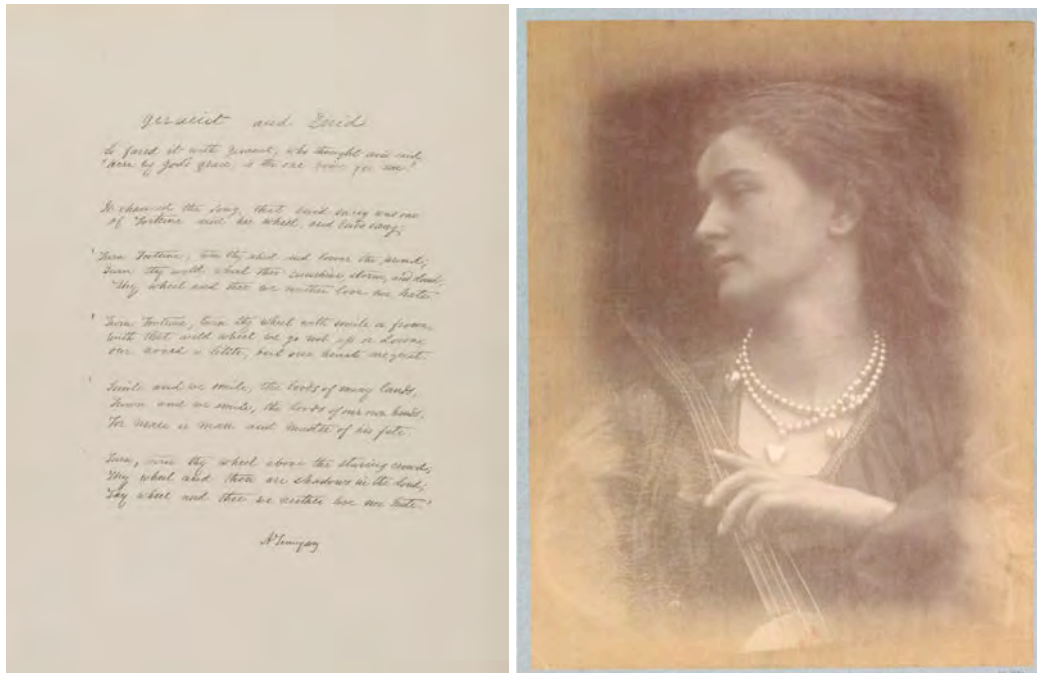 Geraint and Enid
So fared it with Geraint, who thought and said,
'Here by God's grace, is the one voice for me.'
It chanced the song, that Enid sang was one
of Fortune and her wheel, and Enid sang;
'Turn Fortune, turn thy wheel and lower the proud;
Turn thy wild wheel thro' sunshine, storm, and cloud;
Thy wheel and thee we neither love nor hate.
'Turn Fortune, turn thy wheel with smile or frown,
with that wild wheel we go not up or down;
our hoard is little, but our hearts are great.
'Smile and we smile, the lords of many lands,
Frown and we smile, the lords of our own hands,
For man is man and master of his fate.
Turn, turn thy wheel above the staring crowd,
Thy wheel and thou are shadows in the cloud;
Thy wheel and thee we neither love nor hate.'
A Tennyson